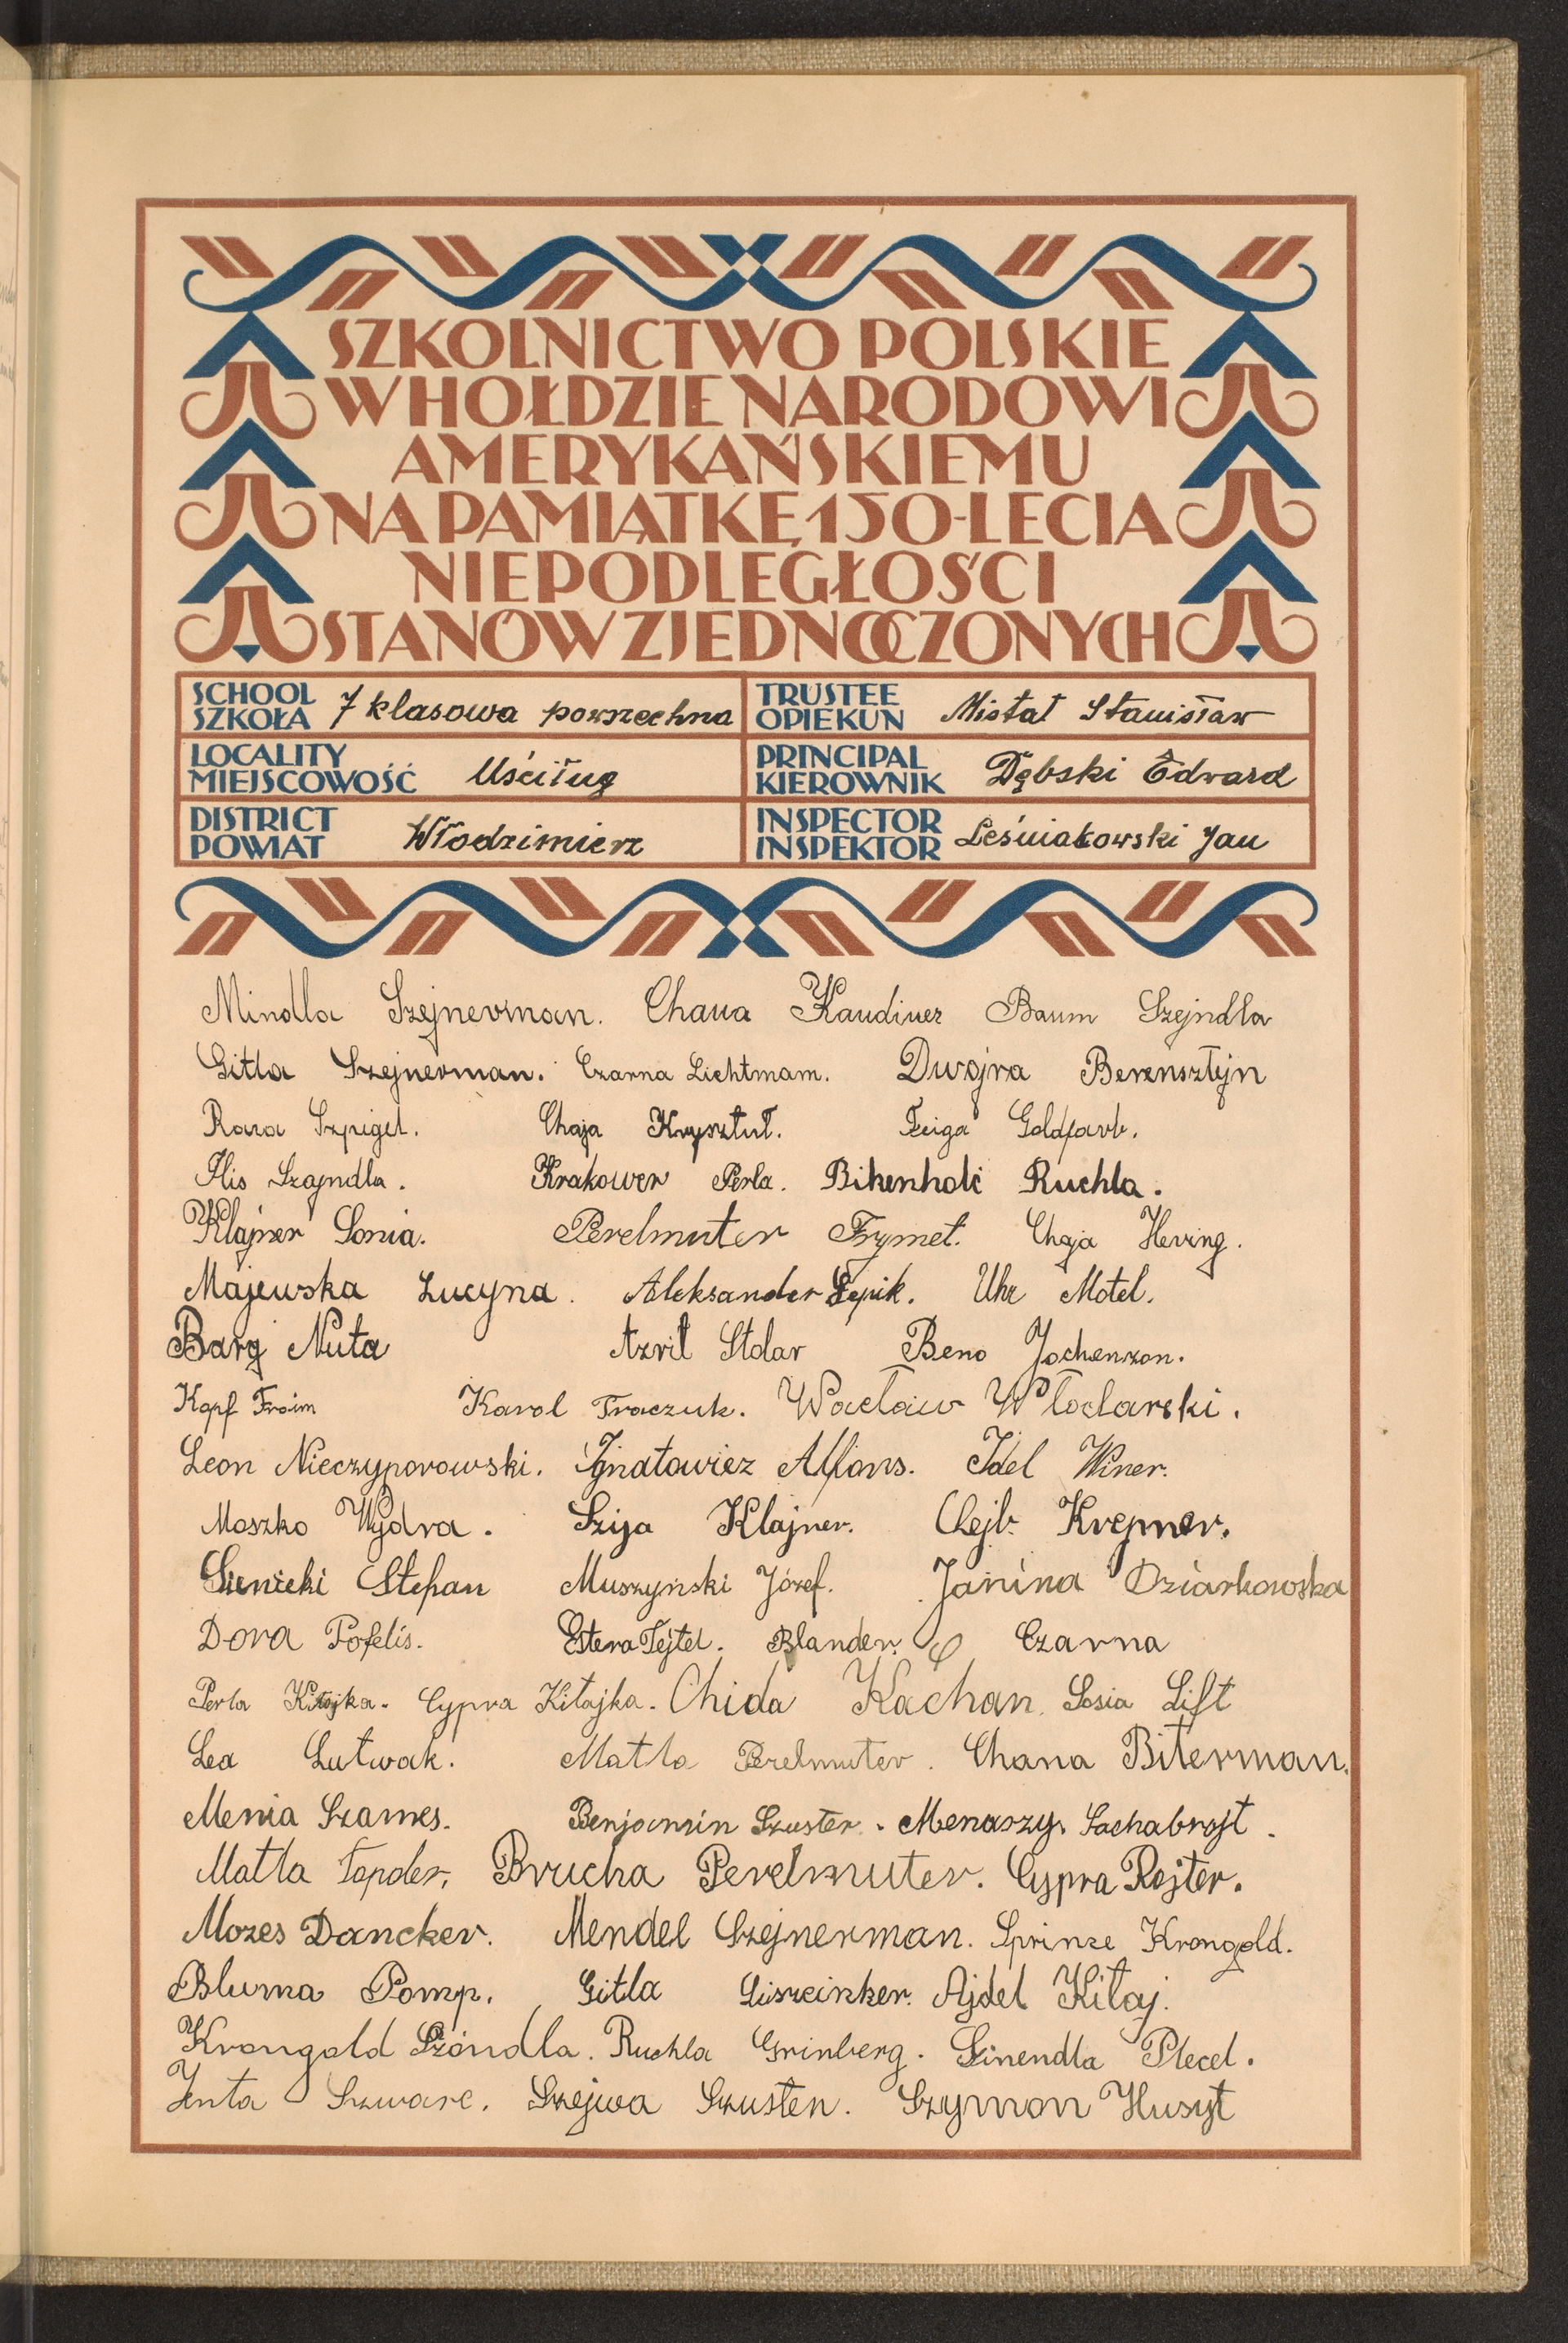 SZKOLNICTWO POLSKIE
W HOŁDZIE NARODOWI
AMERYKAŃSKIEMU
NA PAMIĄTKĘ 150-LECIA
NIEPODLEGŁOŚCI
STANÓW ZJEDNOCZONYCH
SCHOOL SZKOŁA 7 klasowa powszechna
TRUSTEE OPIEKUN Mistat Stanisław
LOCALITY MIEJSCOWOŚĆ Uściług
PRINCIPAL KIEROWNIK Dębski Edward
DISTRICT POWIAT Włodzimierz
INSPECTOR INSPEKTOR Leśniakowski Jan
Mindla Szejnerman. Chaua Kaudiner Baum Szejndla
Gitla Szejnerman. Czarna Lichtmam. Dwojra Berensztejn
Szpigel. Chaja Krysztuł. Feiga Goldfarb.
Szajndla. Krakower Perla. Bikenholc Ruchla.
Klajner Sonia. Perelmuter Frymet. Chaja Hering.
Majewska Lucyna. Aleksander Łepik. Uhr Motel.
Barg Nuta Azril Stolar Beno Jochenzon.
Kopf Froim Karol Traczuk. Wacław Włodarski.
Leon Nieczyporowski. Ignatowicz Alfons. Idel Winer.
Moszko Wydra. Szija Klajner. Lejb Krepner.
Sienicki Stefan Muszyński Józef. Janina Dziarkowska
Dora Fofelis. Estera Tejtel. Blander. C Czarna
Perla Kitajka. Cypra Kitajka. Chida Kachan. Sosia Lift
Lea Lutwak. Matla Perelmuter. Chana Biterman.
Menia Szames. Benjamin Szuster. Menaszy. Sachabrojt.
Matla Tepder, Brucha Perelmuter. Cypra Rojter.
Mozes Dancker. Mendel Szejnerman. Sprinze Krongold.
Bluma Pomp. Gitla Ajdel Kitaj.
Krongold Ruchla Grinberg. Plecel.
Jenta Szwarc. Szejwa Szusten. Szymon Husyt